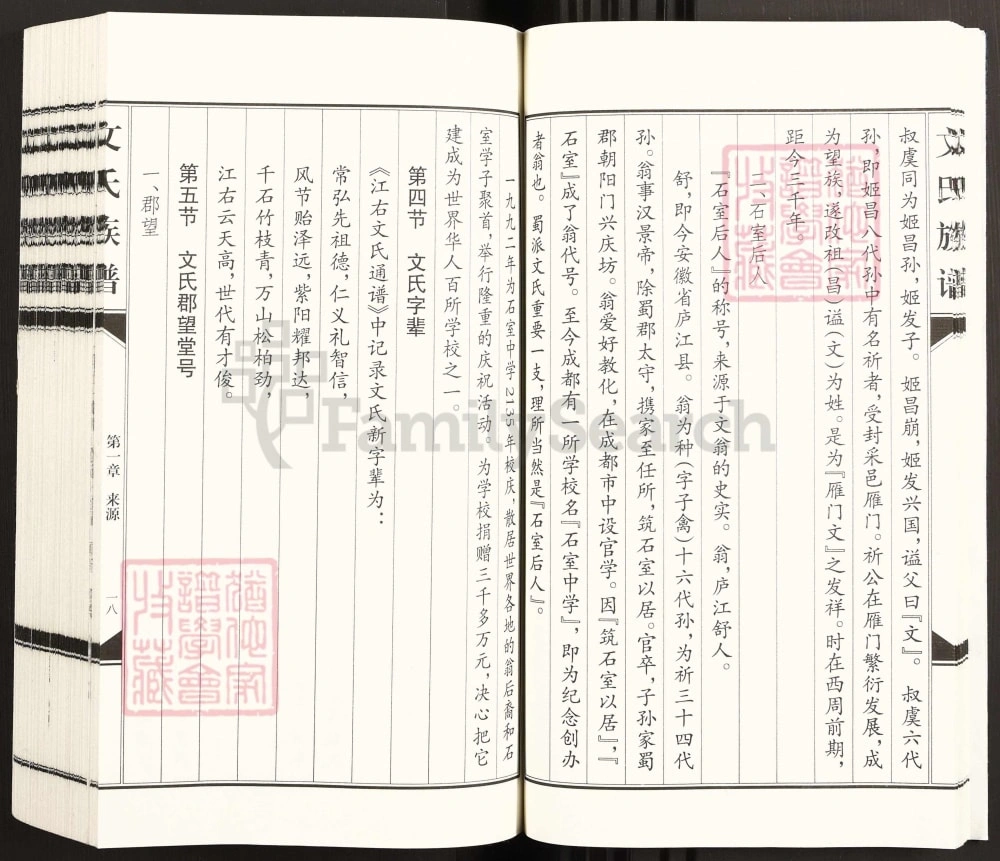 文氏族谱
叔虞同为姬昌孙，姬发子。姬昌崩，姬发兴国，谥父曰『文』。叔虞六代
孙，即姬昌八代孙中有名祈者，受封采邑雁门。祈公在雁门繁衍发展，成
为望族，遂改祖(昌)谥(文)为姓。是为『雁门文』之发祥。时在西周前期，
距今三千年。
二、石室后人
『石室后人』的称号，来源于文翁的史实。翁，庐江舒人。
舒，即今安徽省庐江县。翁为种(字子禽)十六代孙，为祈三十四代
孙。翁事汉景帝，除蜀郡太守，携家至任所，筑石室以居。官卒，子孙家蜀
郡朝阳门兴庆坊。翁爱好教化，在成都市中设官学。因『筑石室以居』，『
石室』成了翁代号。至今成都有一所学校名『石室中学』，即为纪念创办
者翁也。蜀派文氏重要一支，理所当然是『石室后人』。
一九九二年为石室中学2135年校庆，散居世界各地的翁后裔和石
室学子聚首，举行隆重的庆祝活动。为学校捐赠三千多万元，决心把它
建成为世界华人百所学校之一。
第四节 文氏字辈
《江右文氏通谱》中记录文氏新字辈为：
常弘先祖德，仁义礼智信，
风节贻泽远，紫阳耀邦达，
千石竹枝青，万山松柏劲，
江右云天高，世代有才俊。
第五节 文氏郡望堂号
一、郡望
文氏族谱
第一章 来源
一八
FamilySearch